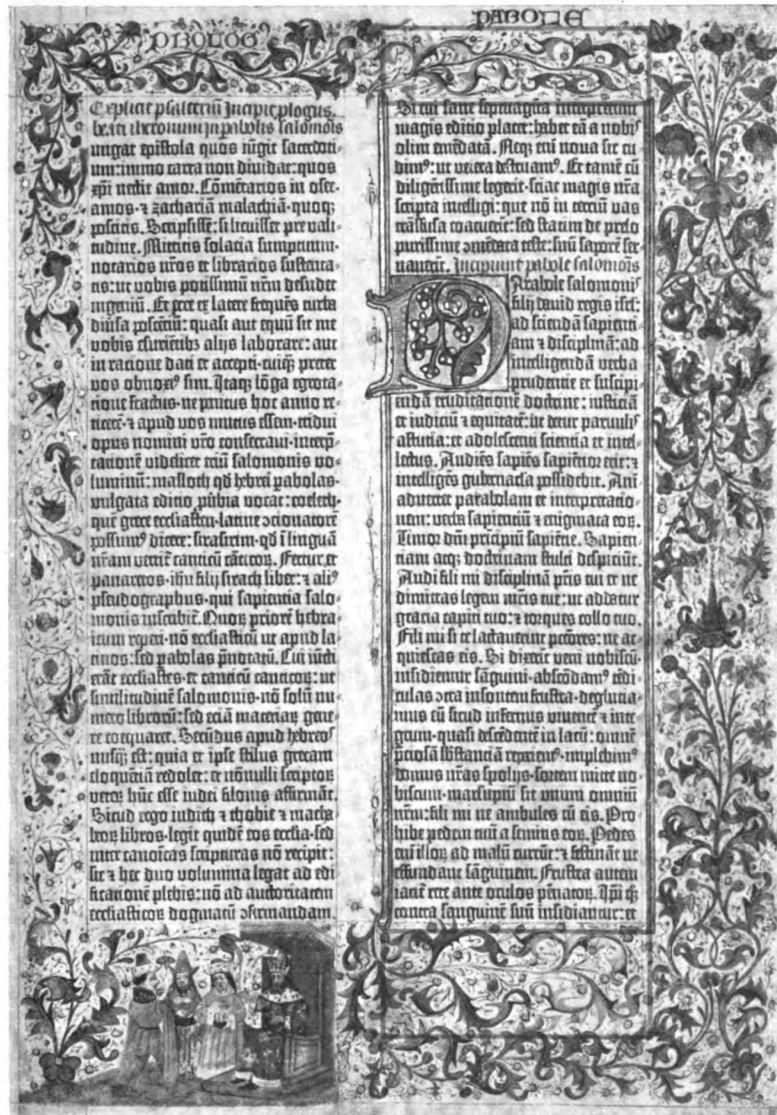 PROLOG
PABOLE
Explicit psalteriū Incipit plogus.
beati iheronimi in pabolis salomōis
Iungat epistola quos iūgit sacerdoti-
um: immo carta non dividat: quos
xp̄i nectit amor. Cōmētarios in osee-
amos ⁊ zachariā malachiā quoqꝫ
poscitis. Scripsissē: si licuisset pre vali-
tudine. Mittitis solacia sumptuum-
notarios nr̄os et librarios sustenta-
tis: ut vobis potissimū nr̄m desudet
ingeniū. Et ecce ex latere frequēs turba
diūsa poscētiū: quasi aut equū sit me
vobis esurientibꝫ alijs laborare: aut
in ratione dati et accepti-cuiqꝫ preter
vos obnoxiꝰ sim. Itaqꝫ lōga egrota-
tione fractus-ne penitus hoc anno re-
ticerē ⁊ apud vos mutus essem-tridui
opus nomini vr̄o consecravi-interp̄-
tationē videlicet triū salomonis vo-
luminū: masloth qd̄ hebrei pabolas-
vulgata editio pūbia vocat: coeleth-
quē grece ecclesiasten-latine ↄcionatorē
possumꝰ dicere: sirasirim-qd̄ ī linguā
nr̄am vertit̄ canticū cāticoꝝ. Fertur et
panaretos-ihū filij sirach liber: ⁊ aliꝰ
pseudographus-qui sapientia salo-
monis inscribit̄. Quoꝝ priorē hebra-
icum reperi-nō ecclesiasticū ut apud la-
tinos: sed pabolas p̄notatū. Cui iūcti
erāt ecclesiastes-et canticū canticoꝝ: ut
similitudinē salomonis-nō solū nu-
mero librorū: sed eciā materiaꝝ gene-
re coequaret. Secūdus apud hebreos
nusqꝫ est: quia et ipse stilus grecam
eloquētiā redolet: et nōnulli scriptoꝝ
veteꝝ hūc esse iudei filonis affirmāt.
Sicud ergo iudith ⁊ thobie ⁊ macha-
beoꝝ libros-legit quidē eos ecclesia-sed
inter canoīcas scripturas nō recipit:
sic ⁊ hec duo volumina legat ad edi-
ficationē plebis: nō ad auctoritatem
ecclesiasticoꝝ dogmatū ↄfirmandam.
Si cui sane septuagīta interpretum
magis editio placet: habet eā a nobis
olim emēdatā. Neqꝫ enī nova sic cu-
dimꝰ: ut vetera destruamꝰ. Et tamē cū
diligētissime legerit-sciat magis nr̄a
scripta intelligi: que nō in terciū vas
trāsfusa coacuerīt: sed statim de prelo
purissime ↄmēdata teste: suū saporē ser-
vaverīt. Incipiunt pabole salomōis
Parabole salomonis
filij david regis isrl̄:
ad sciendā sapienti-
am ⁊ disciplinā: ad
intelligendā verba
prudentie et suscipi-
endā eruditationē doctrine: iusticiā
et iudiciū ⁊ equitatē: ut detur parvulis
astutia: et adolescenti scientia et intel-
lectus. Audiēs sapiēs sapientior erit: ⁊
intelligēs gubernacla possidebit. Ani-
advertet parabolam et interpretatio-
nem: verba sapientiū ⁊ enigmata eoꝝ.
Timor dn̄i pricipiū sapiētie. Sapien-
tiam atqꝫ doctrinam stulti despiciūt.
Audi fili mi disciplinā pr̄is tui et ne
dimittas legem mr̄is tue: ut addatur
gracia capiti tuo: ⁊ torques collo tuo.
Fili mi si te lactaverint peccōres: ne ac-
quiescas eis. Si dixerīt veni nobiscū-
insidiemur sāguini-abscōdamꝰ tēdi-
culas ↄtra insontem frustra-deglucia-
mus eū sicud infernus viventē ⁊ inte-
grum-quasi descēdentē in lacū: omnē
p̄ciosā substanciā reperiemꝰ-implebimꝰ
domus nr̄as spolijs-sortem mitte no-
biscum-marsupiū sit unum omniū
nr̄m: fili mi ne ambules cū eis. Pro-
hibe pedem tuū a semitis eoꝝ. Pedes
enī illoꝝ ad malū currūt: ⁊ festināt ut
effundant sāguinem. Frustra autem
iacit̄ rete ante oculos pēnatoꝝ. Ipi qꝫ
contra sanguinē suū insidiantur: et